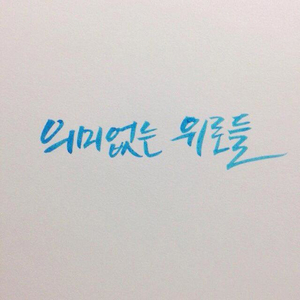 의미없는 위로들